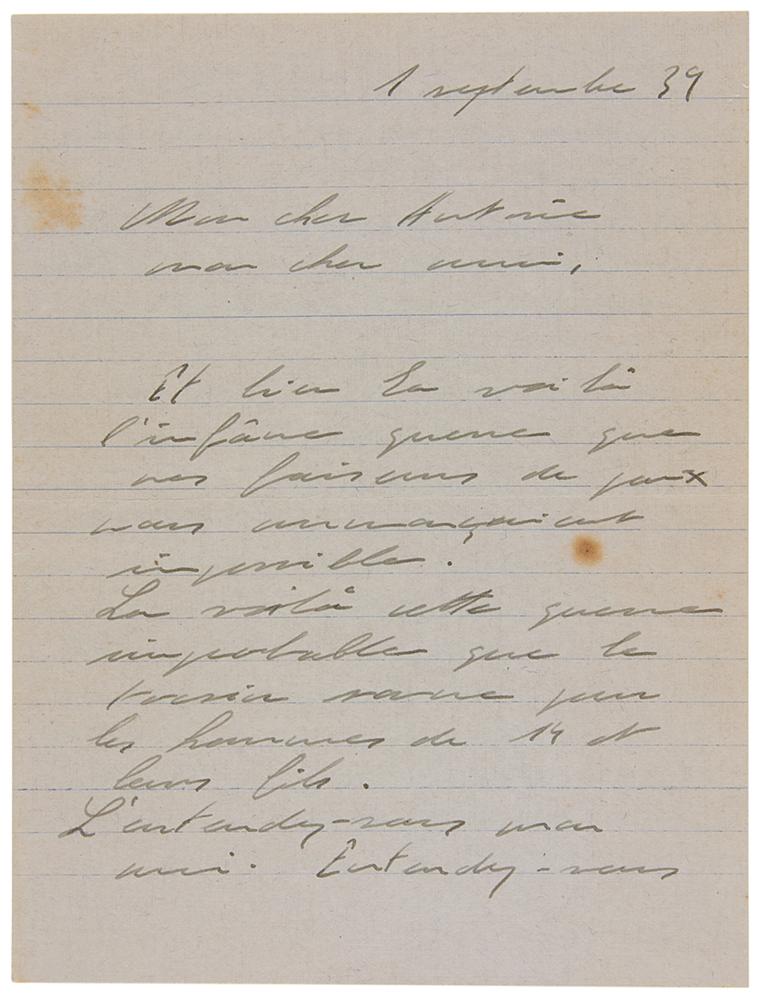 1 septembre 39
Mon cher Antoine
mon cher ami,
Et bien la voilà
l'infâme guerre que
nos faiseurs de paix
nous annonçaient
impossible.
La voilà cette guerre
improbable que le
tocsin sonne pour
les hommes de 14 et
leurs fils.
L'entendez-vous mon
ami. Entendez-vous